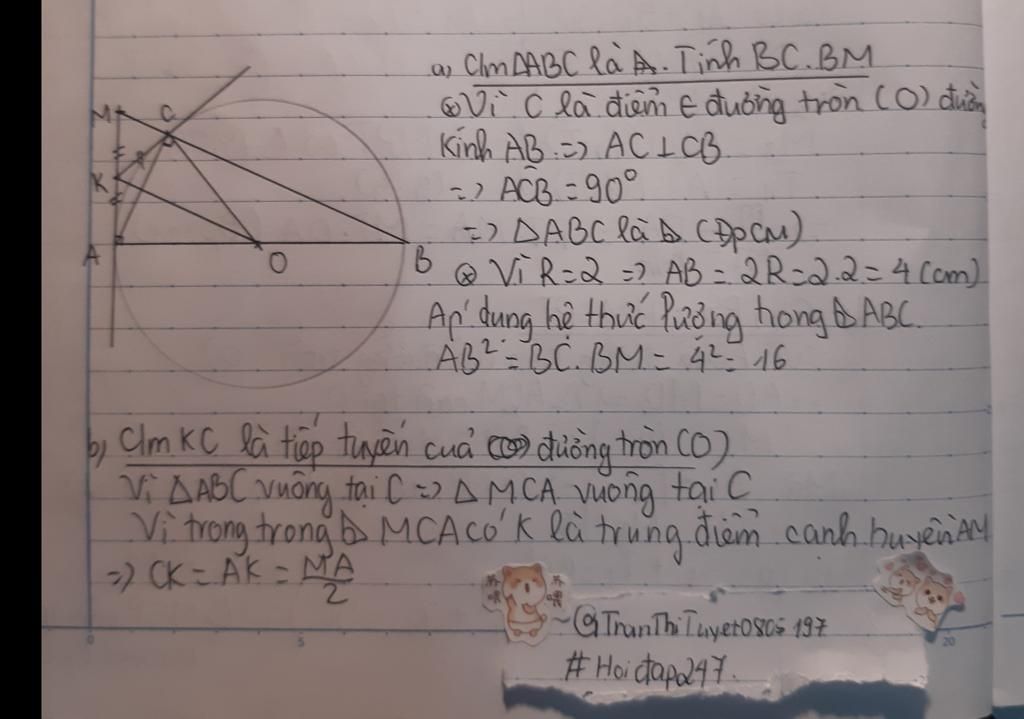 a, Clm ΔABC là Δ. Tính BC.BM
⊗ Vì C là điểm ∈ đường tròn (O) đường
kính AB => AC ⊥ CB
=> ACB̂ = 90°
=> ΔABC là Δ (ĐPCM)
⊗ Vì R=2 => AB = 2R=2.2=4(cm)
Áp dụng hệ thức lượng trong ΔABC.
AB² = BC.BM = 4² = 16
M
C
K
A
O
B
b, Clm KC là tiếp tuyến của đường tròn (O)
Vì ΔABC vuông tại C => ΔMCA vuông tại C
Vì trong trong Δ MCA có K là trung điểm cạnh huyền AM
=> CK = AK = MA/2
~@TranThiTuyet0805197
#Hoidap247.
0 5 20